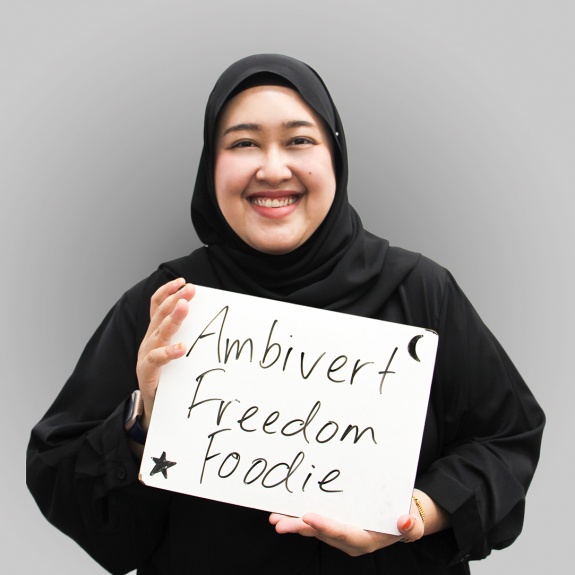 Ambivert
Freedom
Foodie